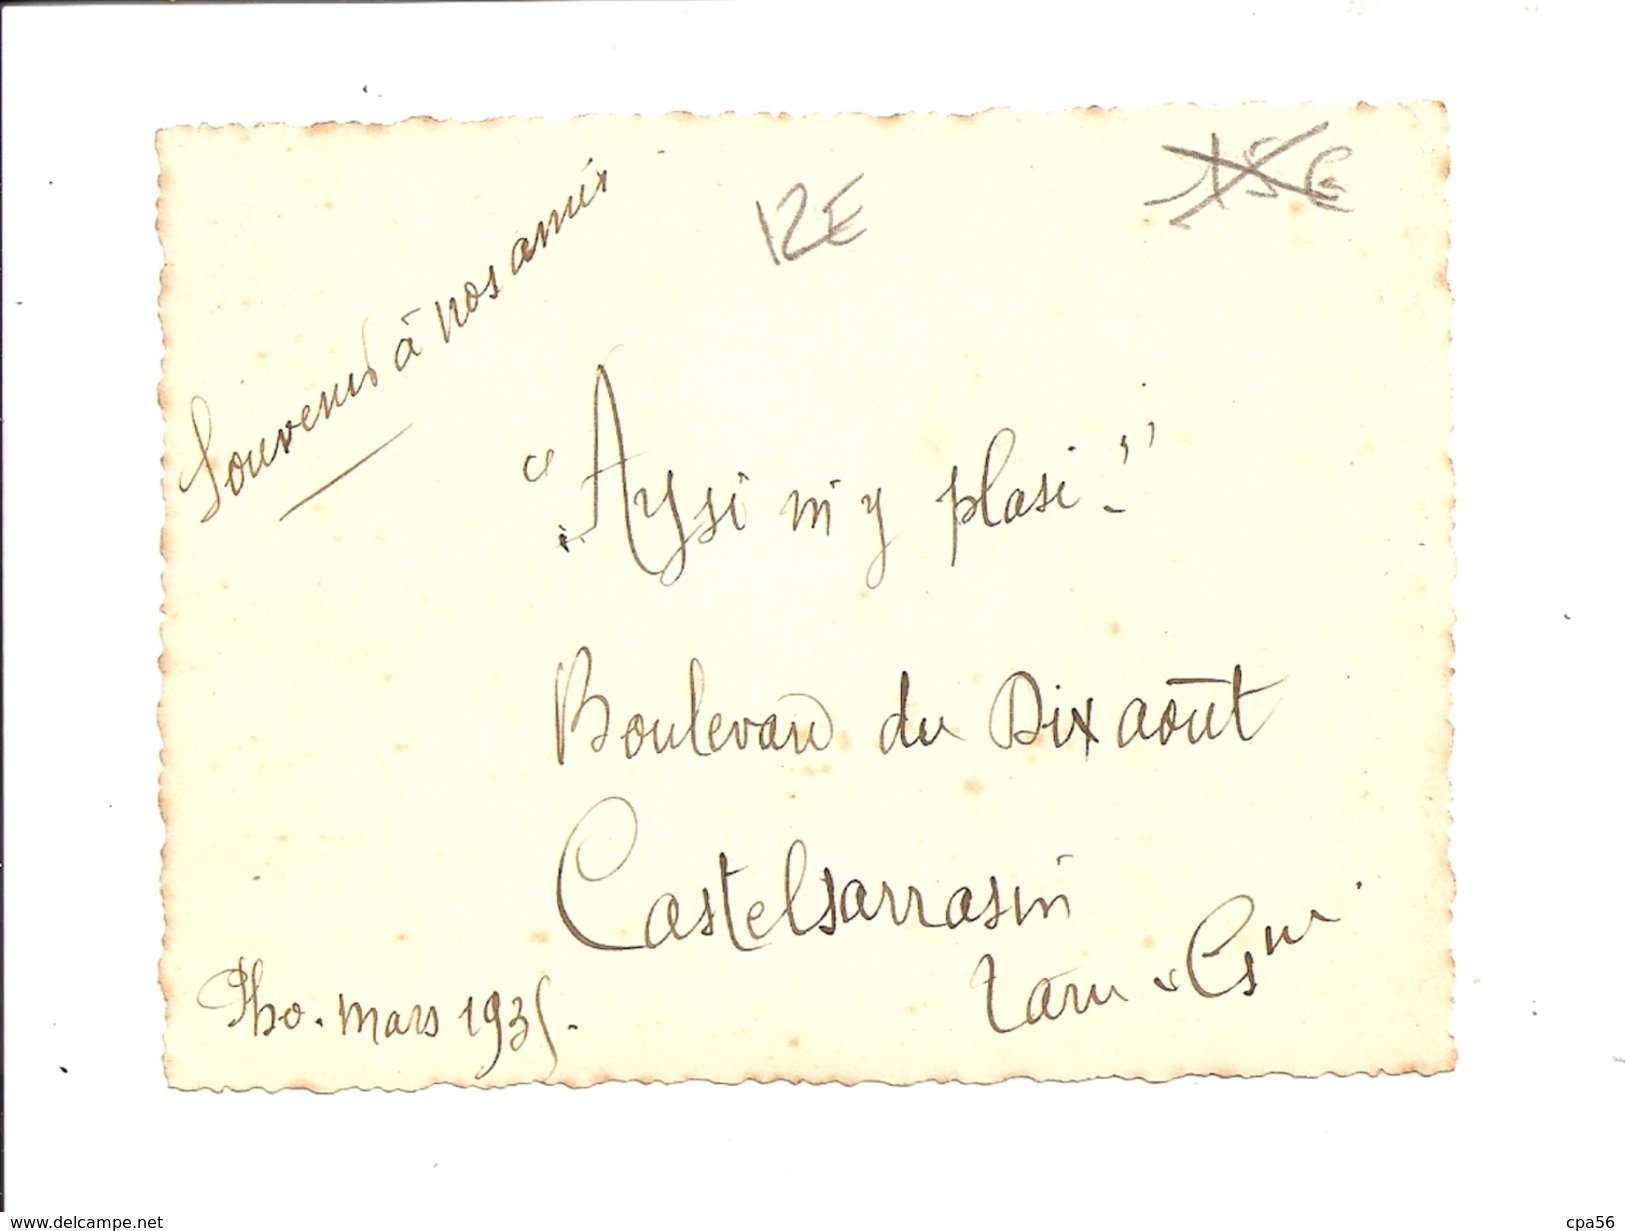 Souvenir à nos amis
12E
15€
"Ayssi m'y plasi."
Boulevard du Dix août
Castelsarrasin
Tarn & Gne
Pho. mars 1935.
www.delcampe.net
cpa56